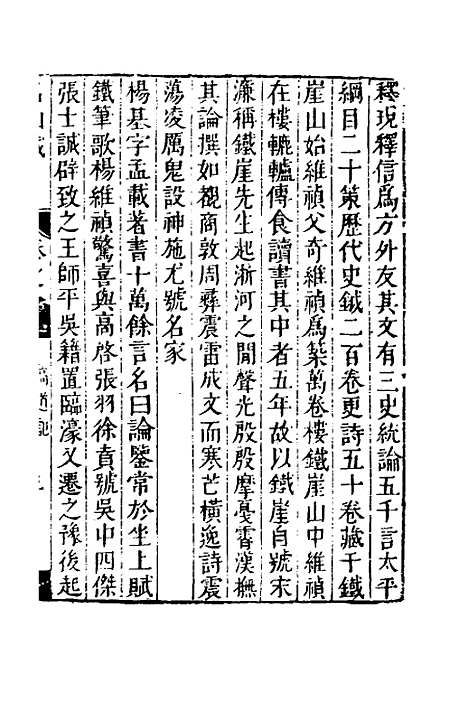 現釋信爲方外友其文有三史統論五千言太平
綱目二十策歷代史鉞二百卷更詩五十卷藏于鐵
崖山始維禎父奇維禎爲築萬卷樓鐵崖山中維禎
在樓轆轤傳食讀書其中者五年故以鐵崖自號宋
濂稱鐵崖先生起浙河之間聲光殷殷摩戛霄漢撫
其論撰如覩商敦周彝震雷成文而寒芒橫逸詩震
蕩凌厲鬼設神施尤號名家
楊基字孟載著書十萬餘言名曰論鑒常於坐上賦
鐵筆歌楊維禎驚喜與高啓張羽徐賁號吳中四傑
張士誠辟致之王師平吳籍置臨濠又遷之豫後起